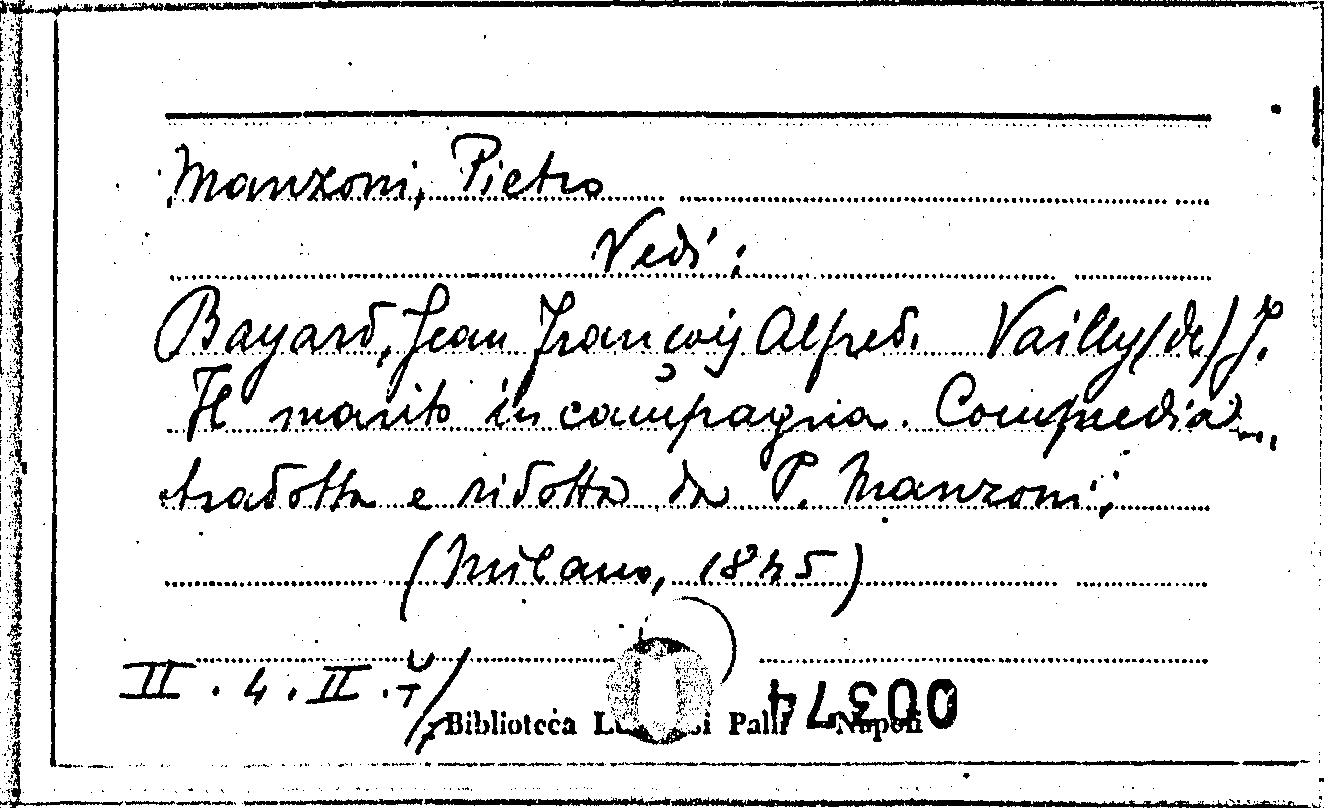 Manzoni, Pietro
Vedi:
Bayard, Jean François Alfred. Vailly (de) J.
Il marito in campagna. Commedia...,
tradotta e ridotta da P. Manzoni;
(Milano, 1845)
II. 4. II.
Biblioteca Palli Napoli
00374